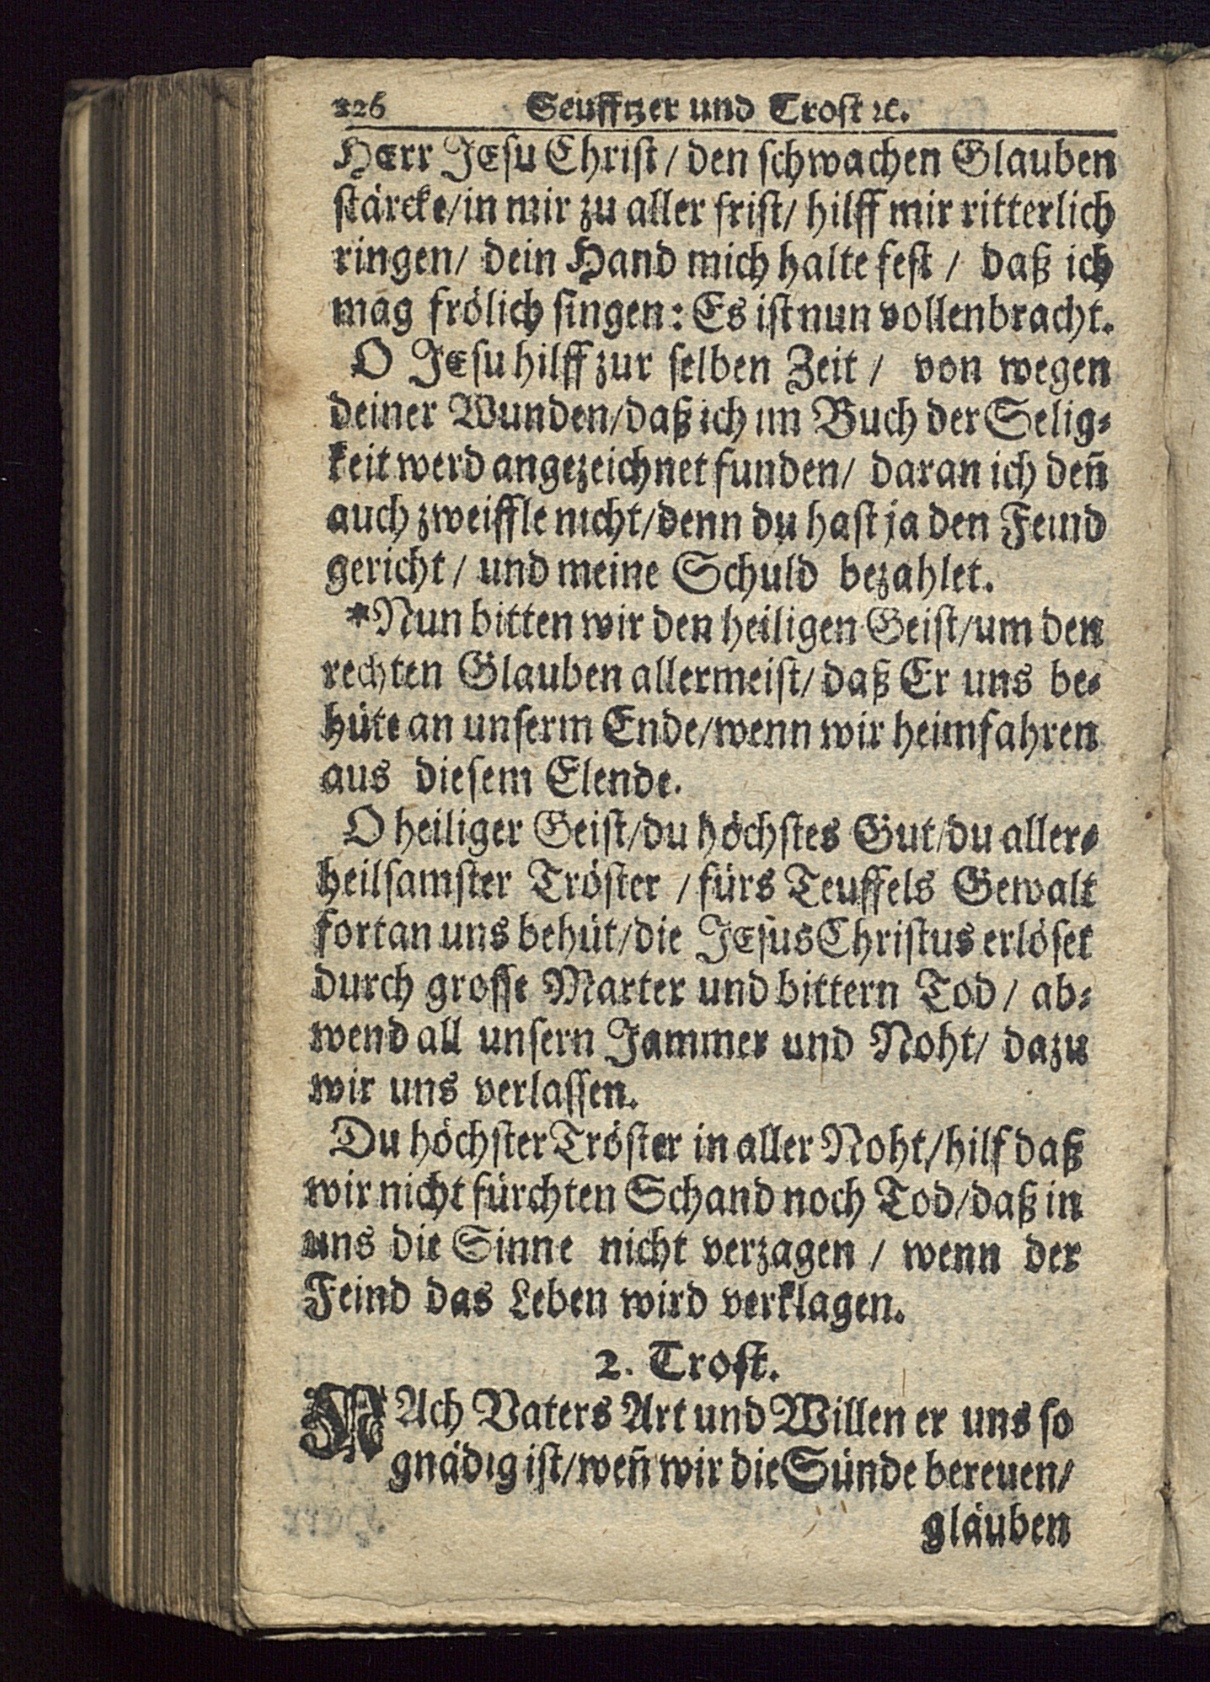 226 Seufftzer und Trost ꝛc.
HErr JEsu Christ / den schwachen Glauben
stärcke/in mir zu aller frist/ hilff mir ritterlich
ringen/ dein Hand mich halte fest / daß ich
mag frölich singen: Es ist nun vollenbracht.
O JEsu hilff zur selben Zeit / von wegen
deiner Wunden/daß ich im Buch der Selig⸗
keit werd angezeichnet funden/ daran ich deñ
auch zweiffle nicht/denn du hast ja den Feind
gericht / und meine Schuld bezahlet.
*Nun bitten wir den heiligen Geist/um den
rechten Glauben allermeist/ daß Er uns be⸗
hüte an unserm Ende/wenn wir heimfahren
aus diesem Elende.
O heiliger Geist/du höchstes Gut/du aller⸗
heilsamster Tröster / fürs Teuffels Gewalt
fortan uns behüt/die JEsus Christus erlöset
durch grosse Marter und bittern Tod / ab⸗
wend all unsern Jammer und Noht/ dazu
wir uns verlassen.
Du höchster Tröster in aller Noht/hilf daß
wir nicht fürchten Schand noch Tod/daß in
uns die Sinne nicht verzagen / wenn der
Feind das Leben wird verklagen.
2. Trost.
NAch Vaters Art und Willen er uns so
gnädig ist/weñ wir die Sünde bereuen/
gläuben